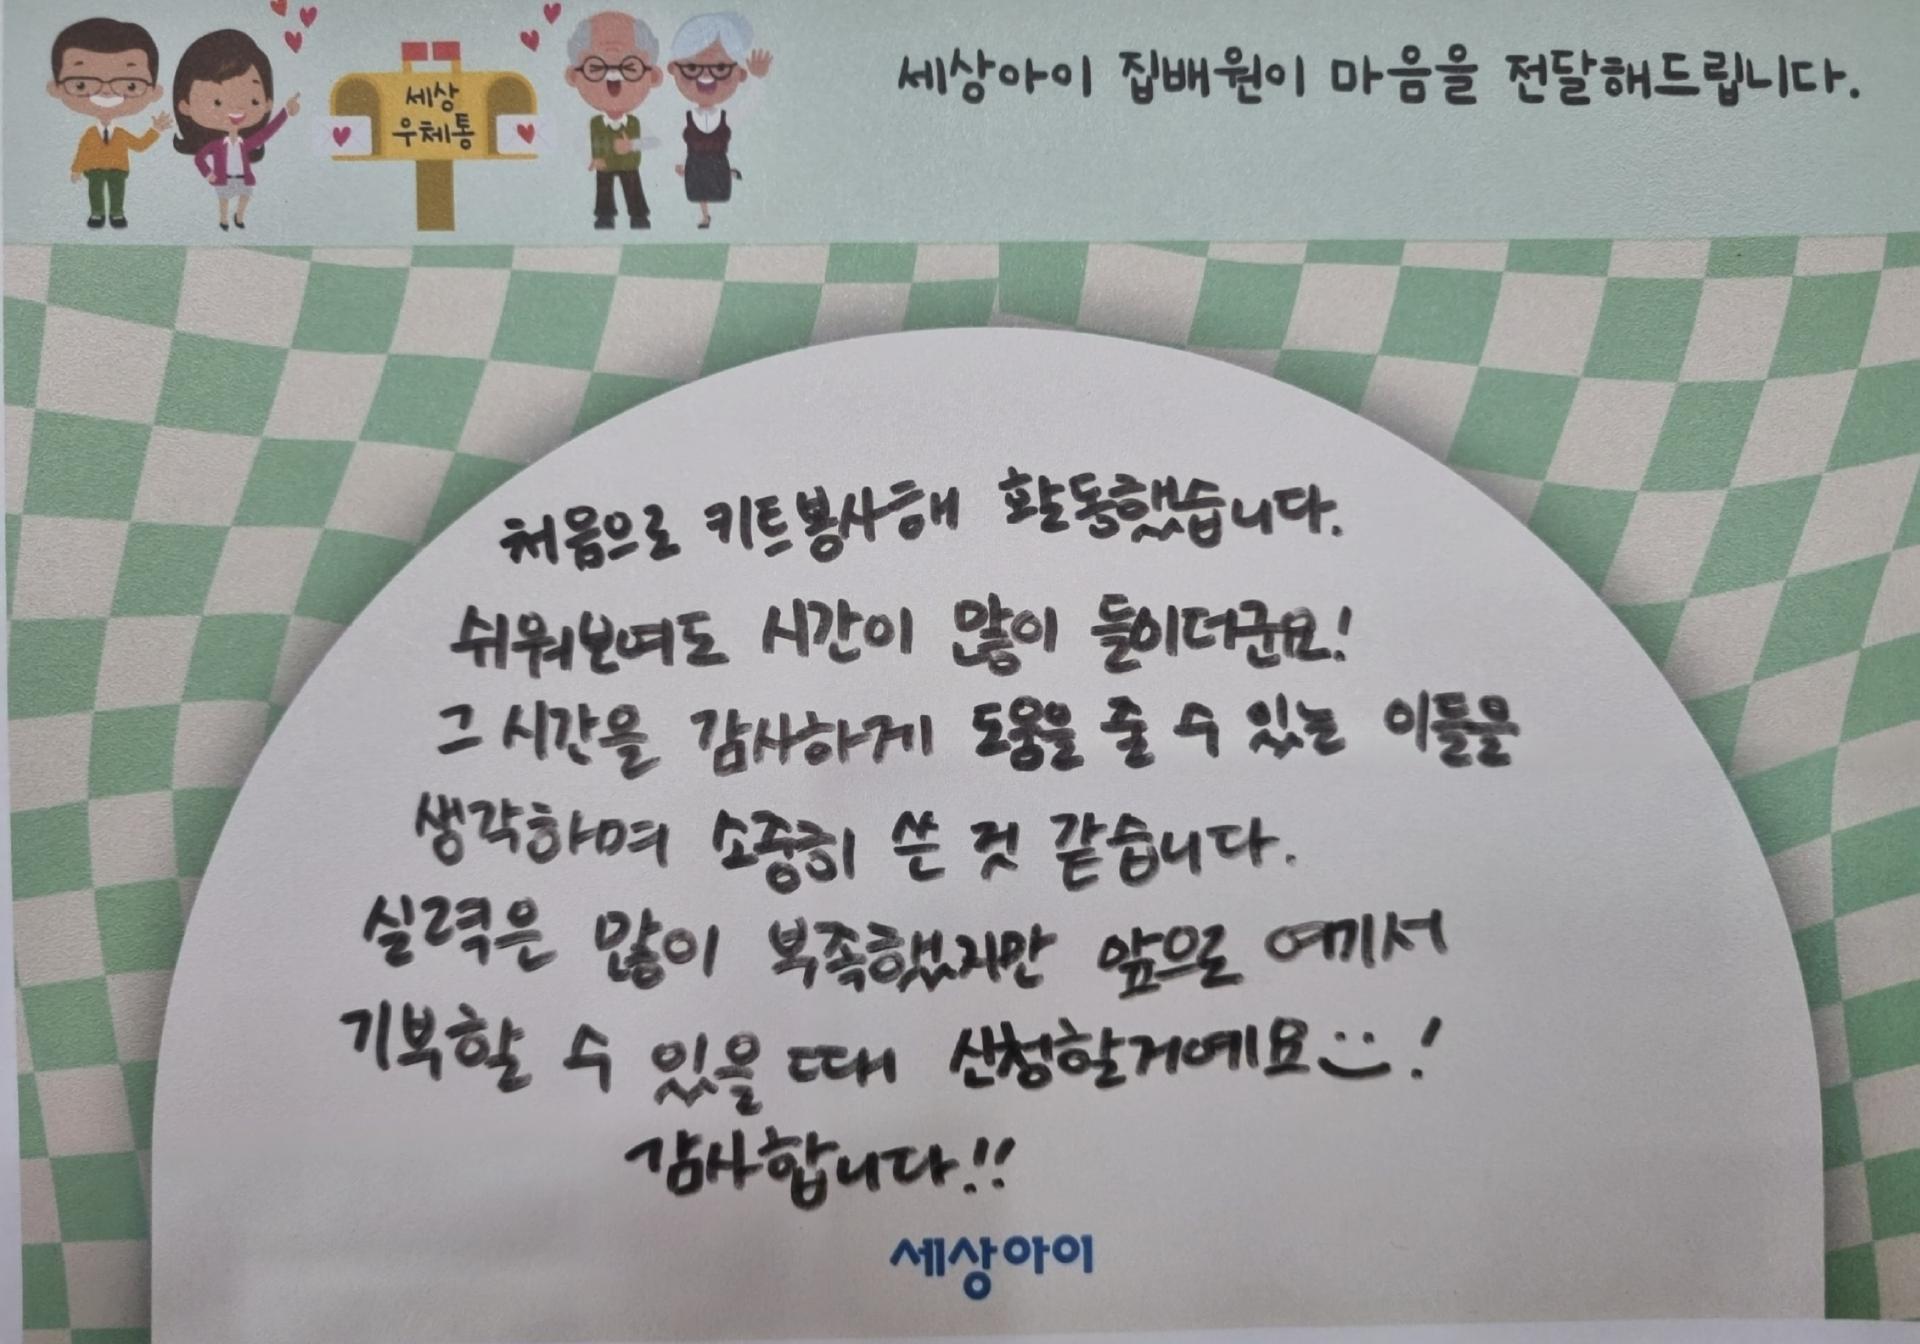 세상아이 집배원이 마음을 전달해드립니다.
세상
우체통
처음으로 키트봉사해 활동했습니다.
쉬워보여도 시간이 많이 들이더군요!
그 시간을 감사하게 도움을 줄 수 있는 이들을
생각하며 소중히 쓴 것 같습니다.
실력은 많이 부족했지만 앞으로 여기서
기부할 수 있을 때 신청할거예요 :) !
감사합니다!!
세상아이